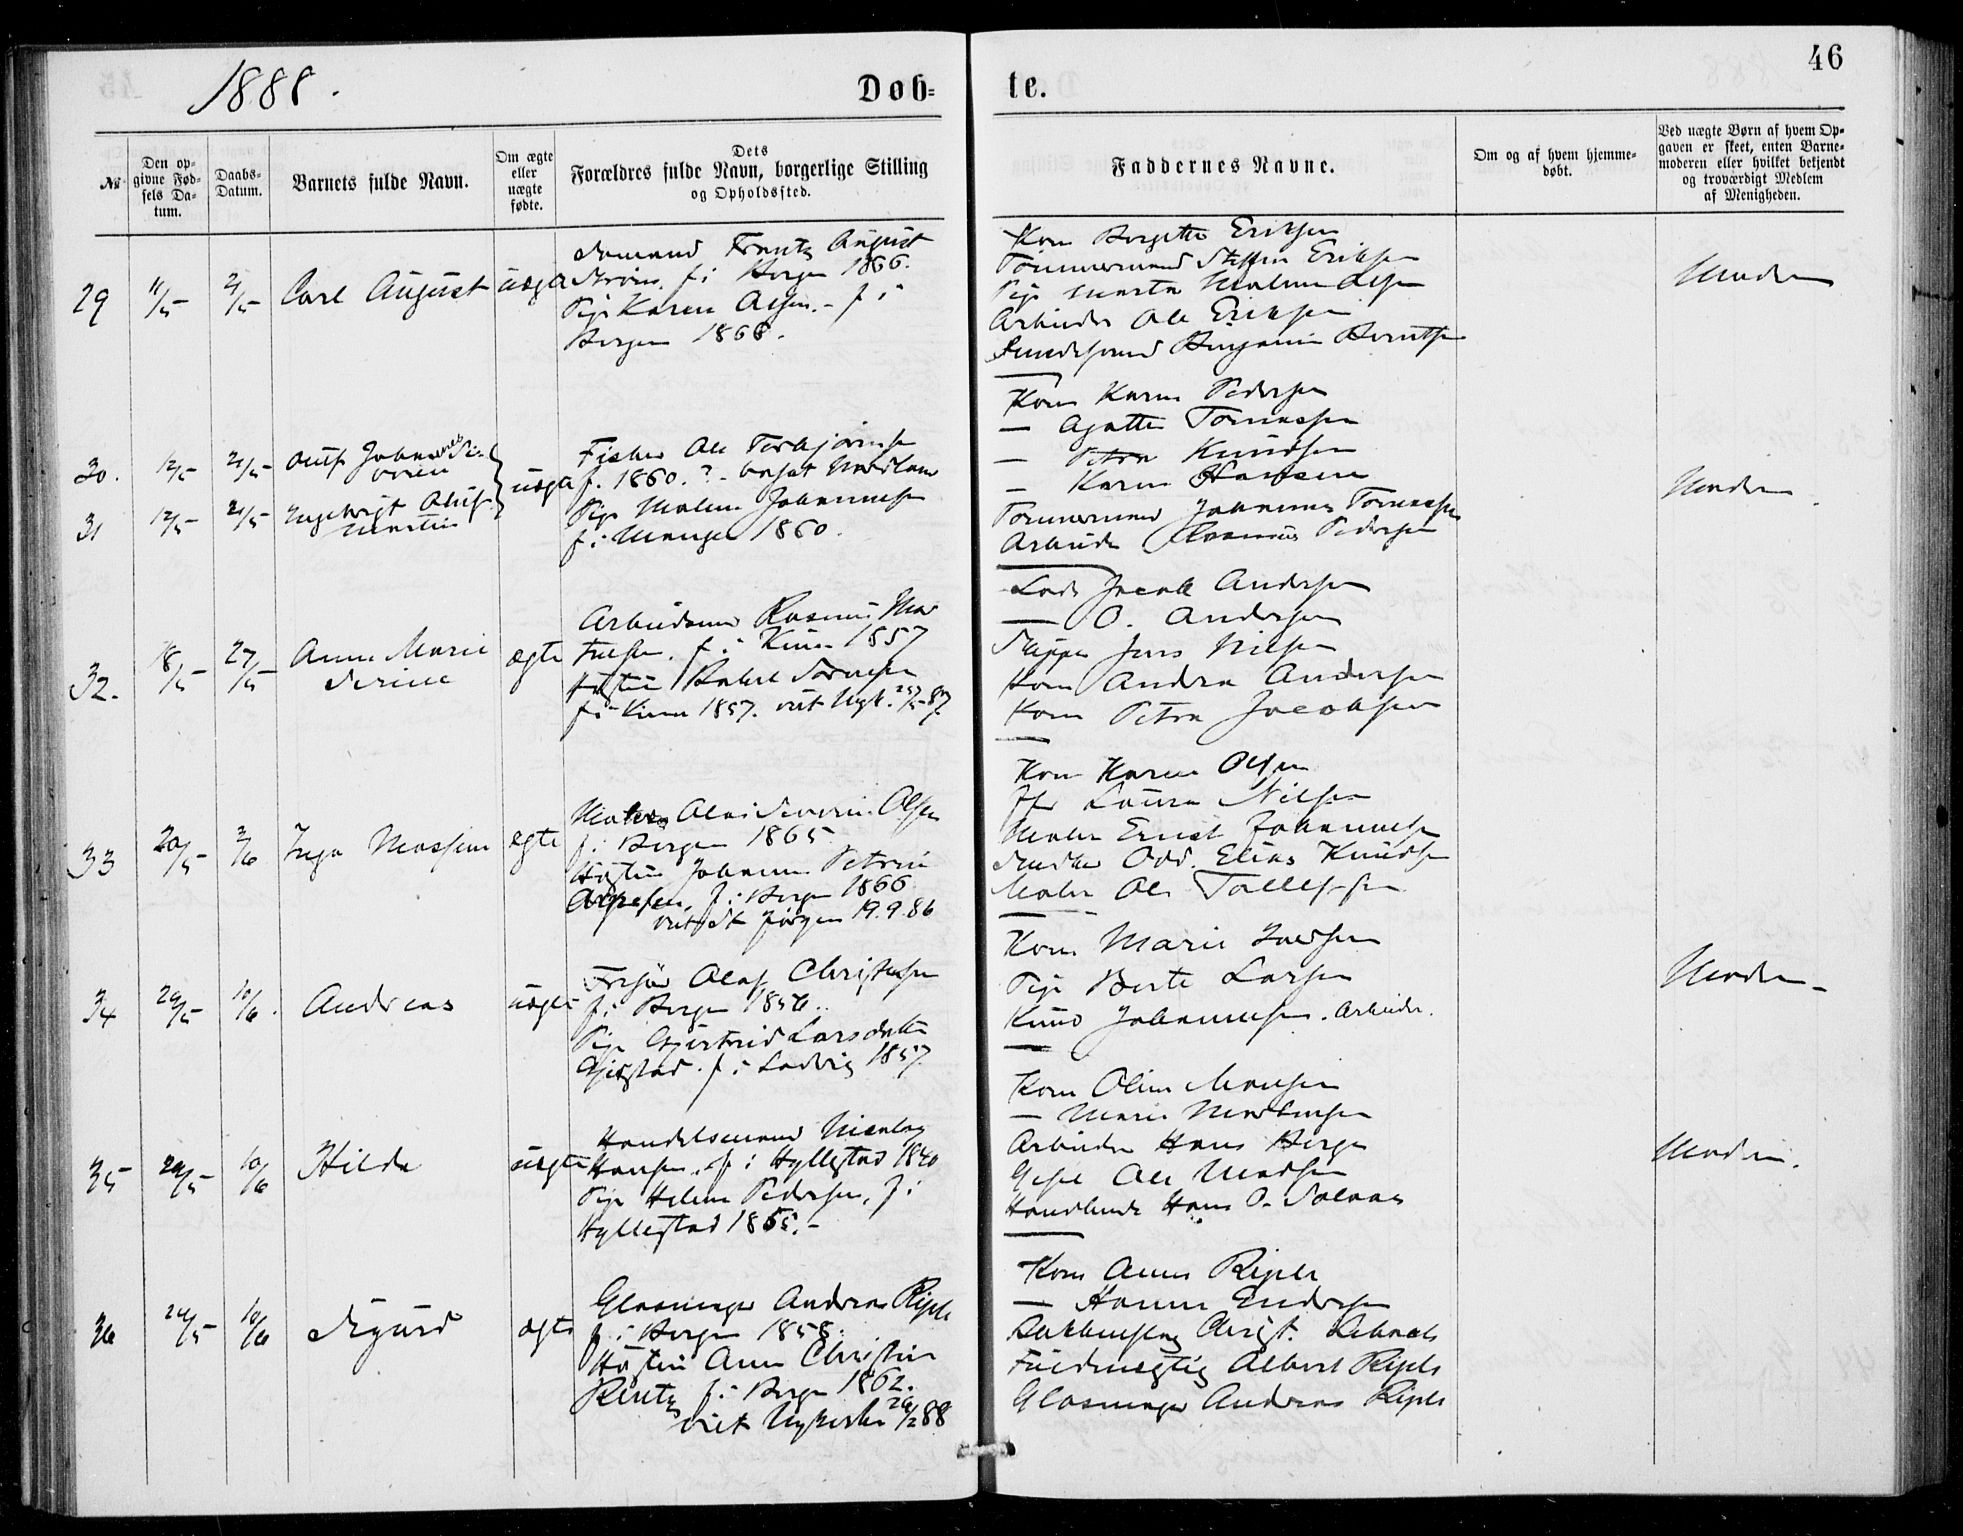 1888.
Døb-
te.
46
№
Den op-
givne Fød-
sels Da-
tum.
Daabs-
Datum.
Barnets fulde Navn.
Om ægte
eller
uægte
fødte.
Dets
Forældres fulde Navn, borgerlige Stilling
og Opholdssted.
Faddernes Navne.
Om og af hvem hjemme-
døbt.
Ved uægte Børn af hvem Op-
gaven er skeet, enten Barne-
moderen eller hvilket bekjendt
og troværdigt Medlem
af Menigheden.
29
11/5
21/5
Carl August
uægte
Sømand Frantz August
Strøm. f. i Bergen 1866.
Pige Karen Olsen. - f i
Bergen 1868.
Kone Bergitte Eriksen
Tømmermand Steffen Eriksen
Pige Marta Malene Olsen
Arbeider Ole Eriksen
Benjamin Berntsen
Moderen
30.
12/5
21/5
Oluf Johannes
31
12/5
21/5
Ingebrigt Oluf
Martin
uægte
Fisker Ole Torbjørnsen
f. 1860. ? - bosat Nordland
Pige Malene Johannesen
f. i Manger 1860.
Kone Karen Pedersen
— Agathe Tomassen
— Petra Knudsen
— Karen Hansen
Tømmermand Johannes Tomassen
Arbeider Rasmus Pedersen
Moderen
32.
18/5
27/5
Anne Marie
Serine
ægte
Arbeidsmand Rasmus Mar
tinsen. f. i Kinn 1857
Hustru Rakel Sørensen
f i Kinn 1857. viet Nyk.
Lods Jacob Andersen
— O. Andersen
Skipper Jens Nilsen
Kone Andrea Andersen
Kone Petra Jacobsen
33
20/5
3/6
Inga
ægte
Olai Severin Olsen
f. i Bergen 1865
Hustru Johanne Petrine
f. i Bergen 1866
viet St Jørgen 19.9.86
Kone Karen Olsen
Jfr Laura Nilsen
Maler Ernst Johannesen
Snedker Odd. Elias Knudsen
Maler Ole Tollefsen
34
29/5
10/6.
Andreas
uægte
Frisør Olaf Christensen
f. i Bergen 1856..
Pige Gjertrud Larsdatter
f. i Ladvig 1857.
Kone Marie Iversen
Pige Berte Larsen
Knud Johannesen. Arbeider.
Moderen
35
29/5
10/6
Hilda
uægte
Handelsmand Nicolay
Hansen.. f i Hyllestad 1840
Pige Helene Pedersen, f i
Hyllestad 1865. -
Kone Oline Monsen
— Marie Martinsen
Arbeider Hans Berge
Ole Madsen
Handlende Hans O. Solaas
Moderen.
36
24/5
10/6
Sigurd
ægte
Glasmager Andreas Ripels
f. i Bergen 1858.
Hustru Anna Christine
Rentz f. i Bergen 1862.
viet Nykirken 26/2 88
Kone Anna Ripels
— Hanna Endresen
Christ.
Fuldmægtig Albert Ripels
Glasmager Andreas Ripels